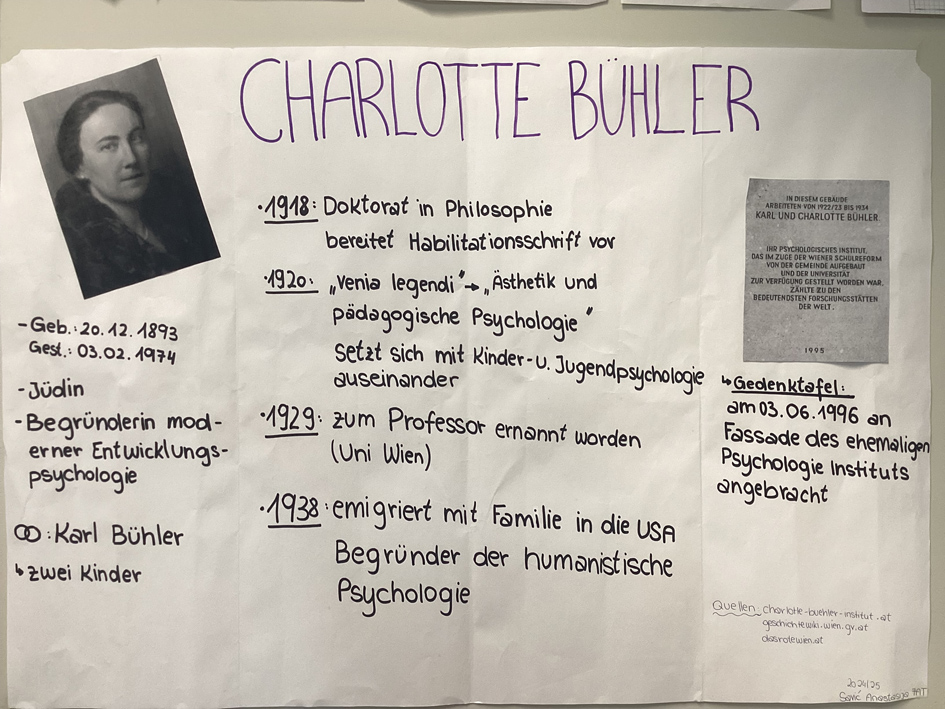 CHARLOTTE BÜHLER
- Geb.: 20.12.1893
Gest.: 03.02.1974
- Jüdin
- Begründerin mod-
erner Entwicklungs-
psychologie
⚭: Karl Bühler
↳ zwei Kinder
• 1918: Doktorat in Philosophie
bereitet Habilitationsschrift vor
• 1920: „Venia legendi" → „Ästhetik und
pädagogische Psychologie"
setzt sich mit Kinder- u. Jugendpsychologie
auseinander
• 1929: zum Professor ernannt worden
(Uni Wien)
• 1938: emigriert mit Familie in die USA
Begründer der humanistische
Psychologie
IN DIESEM GEBÄUDE
ARBEITETEN VON 1922/23 BIS 1934
KARL UND CHARLOTTE BÜHLER.
IHR PSYCHOLOGISCHES INSTITUT,
DAS IM ZUGE DER WIENER SCHULREFORM
VON DER GEMEINDE AUFGEBAUT
UND DER UNIVERSITÄT
ZUR VERFÜGUNG GESTELLT WORDEN WAR,
ZÄHLTE ZU DEN
BEDEUTENDSTEN FORSCHUNGSSTÄTTEN
DER WELT.
1995
↳ Gedenktafel:
am 03.06.1996 an
Fassade des ehemaligen
Psychologie Instituts
angebracht
Quellen: charlotte-buehler-institut.at
geschichtewiki.wien.gv.at
dasrotewien.at
2024/25
Anastasija